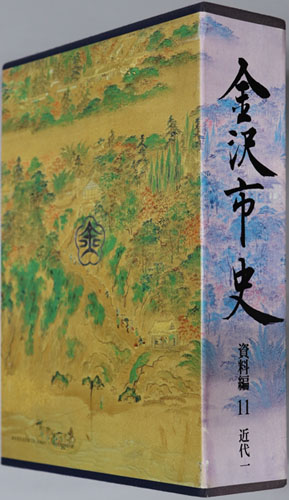 金沢市史
資料編 11 近代一